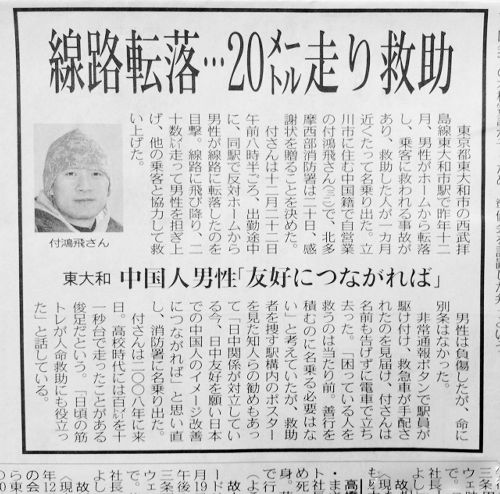 線路転落…20メートル走り救助
東京都東大和市の西武拝
島線東大和市駅で昨年十二
月、男性がホームから転落
し、乗客に救われる事故が
あり、救助した人が一カ月
近くたって名乗り出た。立
川市に住む中国籍で自営業
の付鴻飛さんで、北多
摩西部消防署は二十日、感
謝状を贈ることを決めた。
付さんは十二月二十二日
午前八時半ごろ、出勤途中
に、同駅で反対ホームから
男性が線路に転落したのを
目撃。線路に飛び降り、二
十数メートル走って男性を担ぎ上
げ、他の乗客と協力して救
い上げた。
付鴻飛さん
東大和 中国人男性「友好につながれば」
男性は負傷したが、命に
別条はなかった。
非常通報ボタンで駅員が
駆け付け、救急車が手配さ
れたのを見届け、付さんは
名前も告げずに電車で立ち
去った。「困っている人を
救うのは当たり前。善行を
積むのに名乗る必要はな
い」と考えていたが、救助
者を捜す駅構内のポスター
を見た知人らの勧めもあっ
て「日中関係が対立してい
る今、日中友好を願い日本
での中国人のイメージ改善
につながれば」と思い直
し、消防署に名乗り出た。
付さんは二〇〇八年に来
日。高校時代には百メートルを十
一秒台で走ったことがある
俊足だという。「日頃の筋
トレが人命救助にも役立っ
た」と話している。